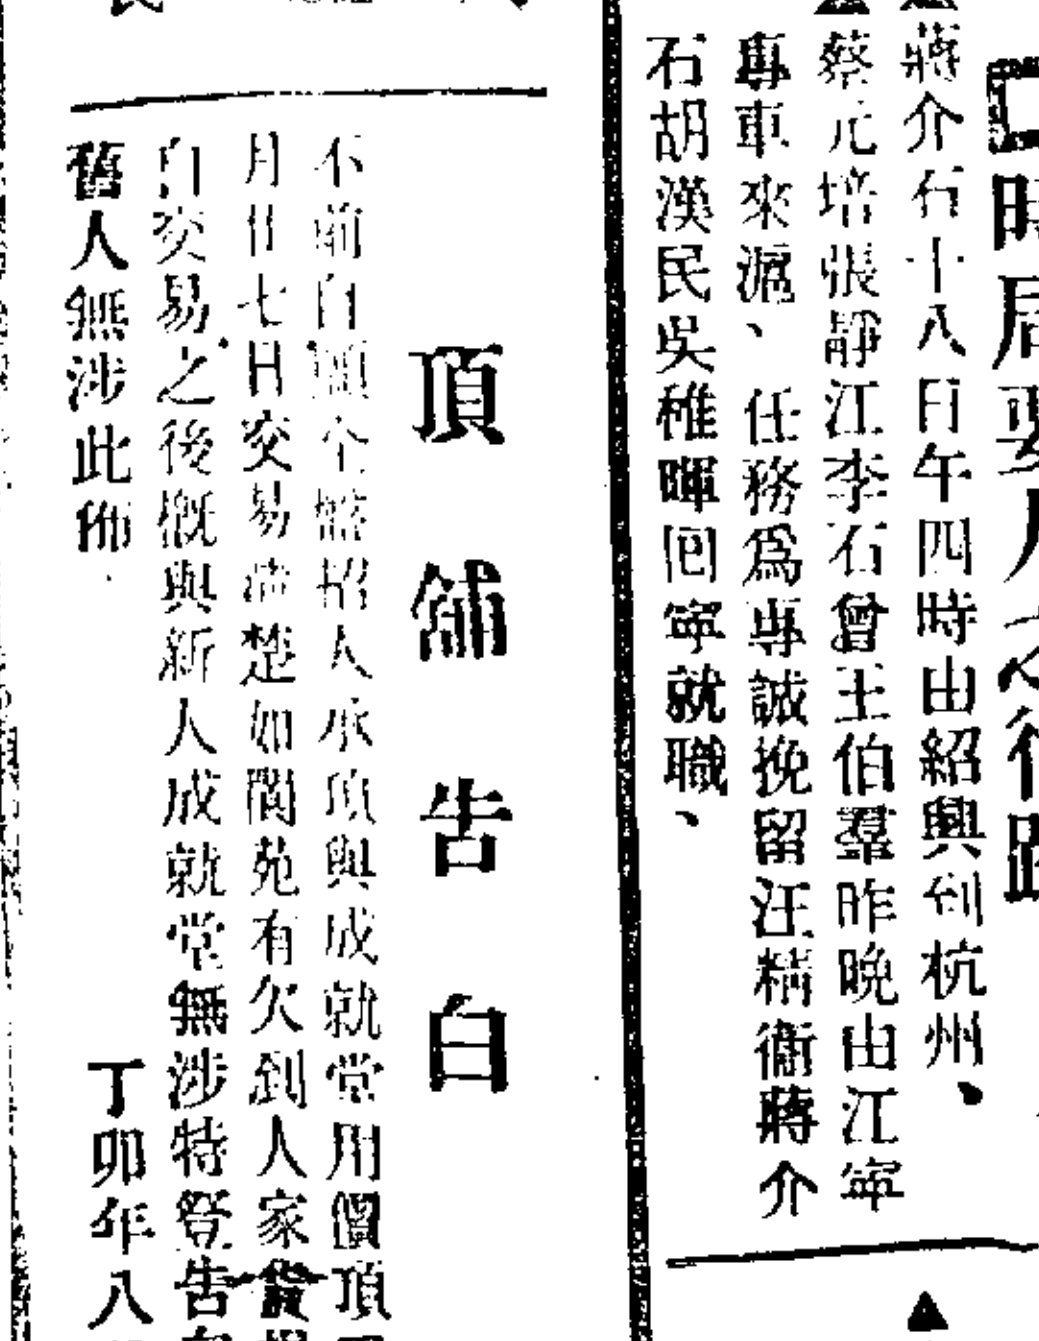 時局要人之行蹤
蔣介石十八日午四時由紹興到杭州、
蔡元培張靜江李石曾王伯羣昨晚由江寧
專車來滬、任務爲專誠挽留汪精衞蔣介
石胡漢民吳稚暉囘寧就職、
頂舖告白
不前自願全盤招人承頂與成就堂用價頂
月廿七日交易清楚如閬苑有欠到人家貨
自交易之後概與新人成就堂無涉特登告白
舊人無涉此佈
丁卯年八